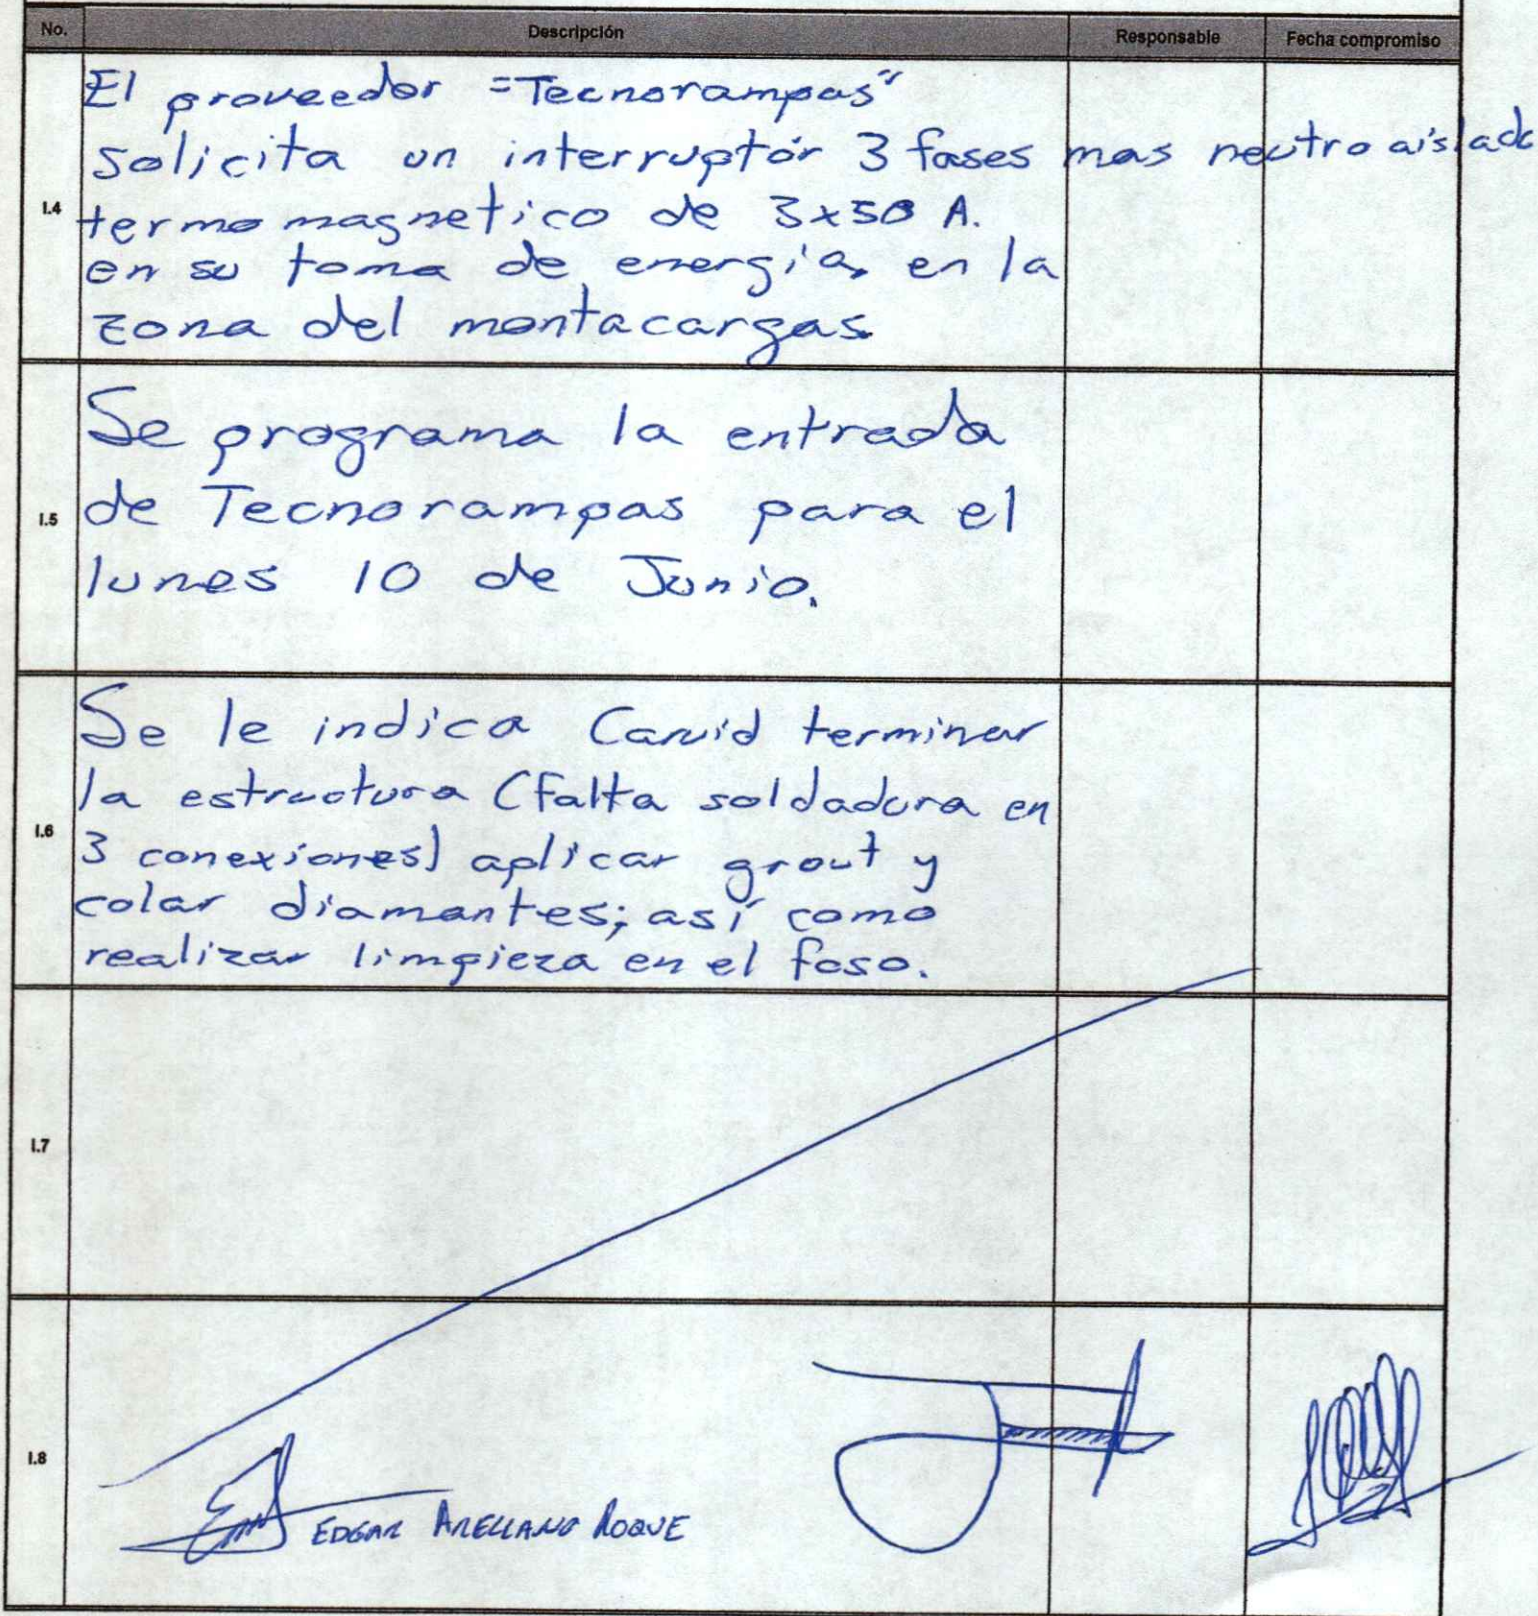 No. Descripción Responsable Fecha compromiso
El proveedor "Tecnorampas"
solicita un interruptór 3 fases mas neutro aislado
I.4
termomagnetico de 3x50 A.
en su toma de energía, en la
zona del montacargas
Se programa la entrada
I.5
de Tecnorampas para el
lunes 10 de Junio.
Se le indica Carvid terminar
la estructura (falta soldadura en
I.6
3 conexiones) aplicar grout y
colar diamantes; así como
realizar limpieza en el foso.
I.7
I.8
EDGAR ARELLANO ROQUE